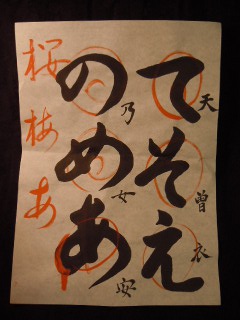 てそえ
天曽衣
のめあ
乃女安
桜梅あ